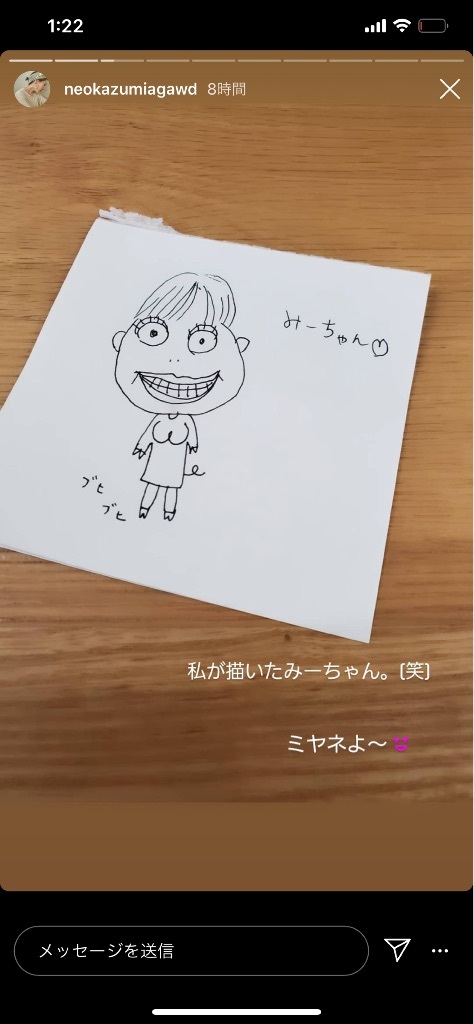 1:22
neokazumiagawd 8時間
みーちゃん♡
ブヒ
ブヒ
私が描いたみーちゃん。(笑)
ミヤネよ〜
メッセージを送信